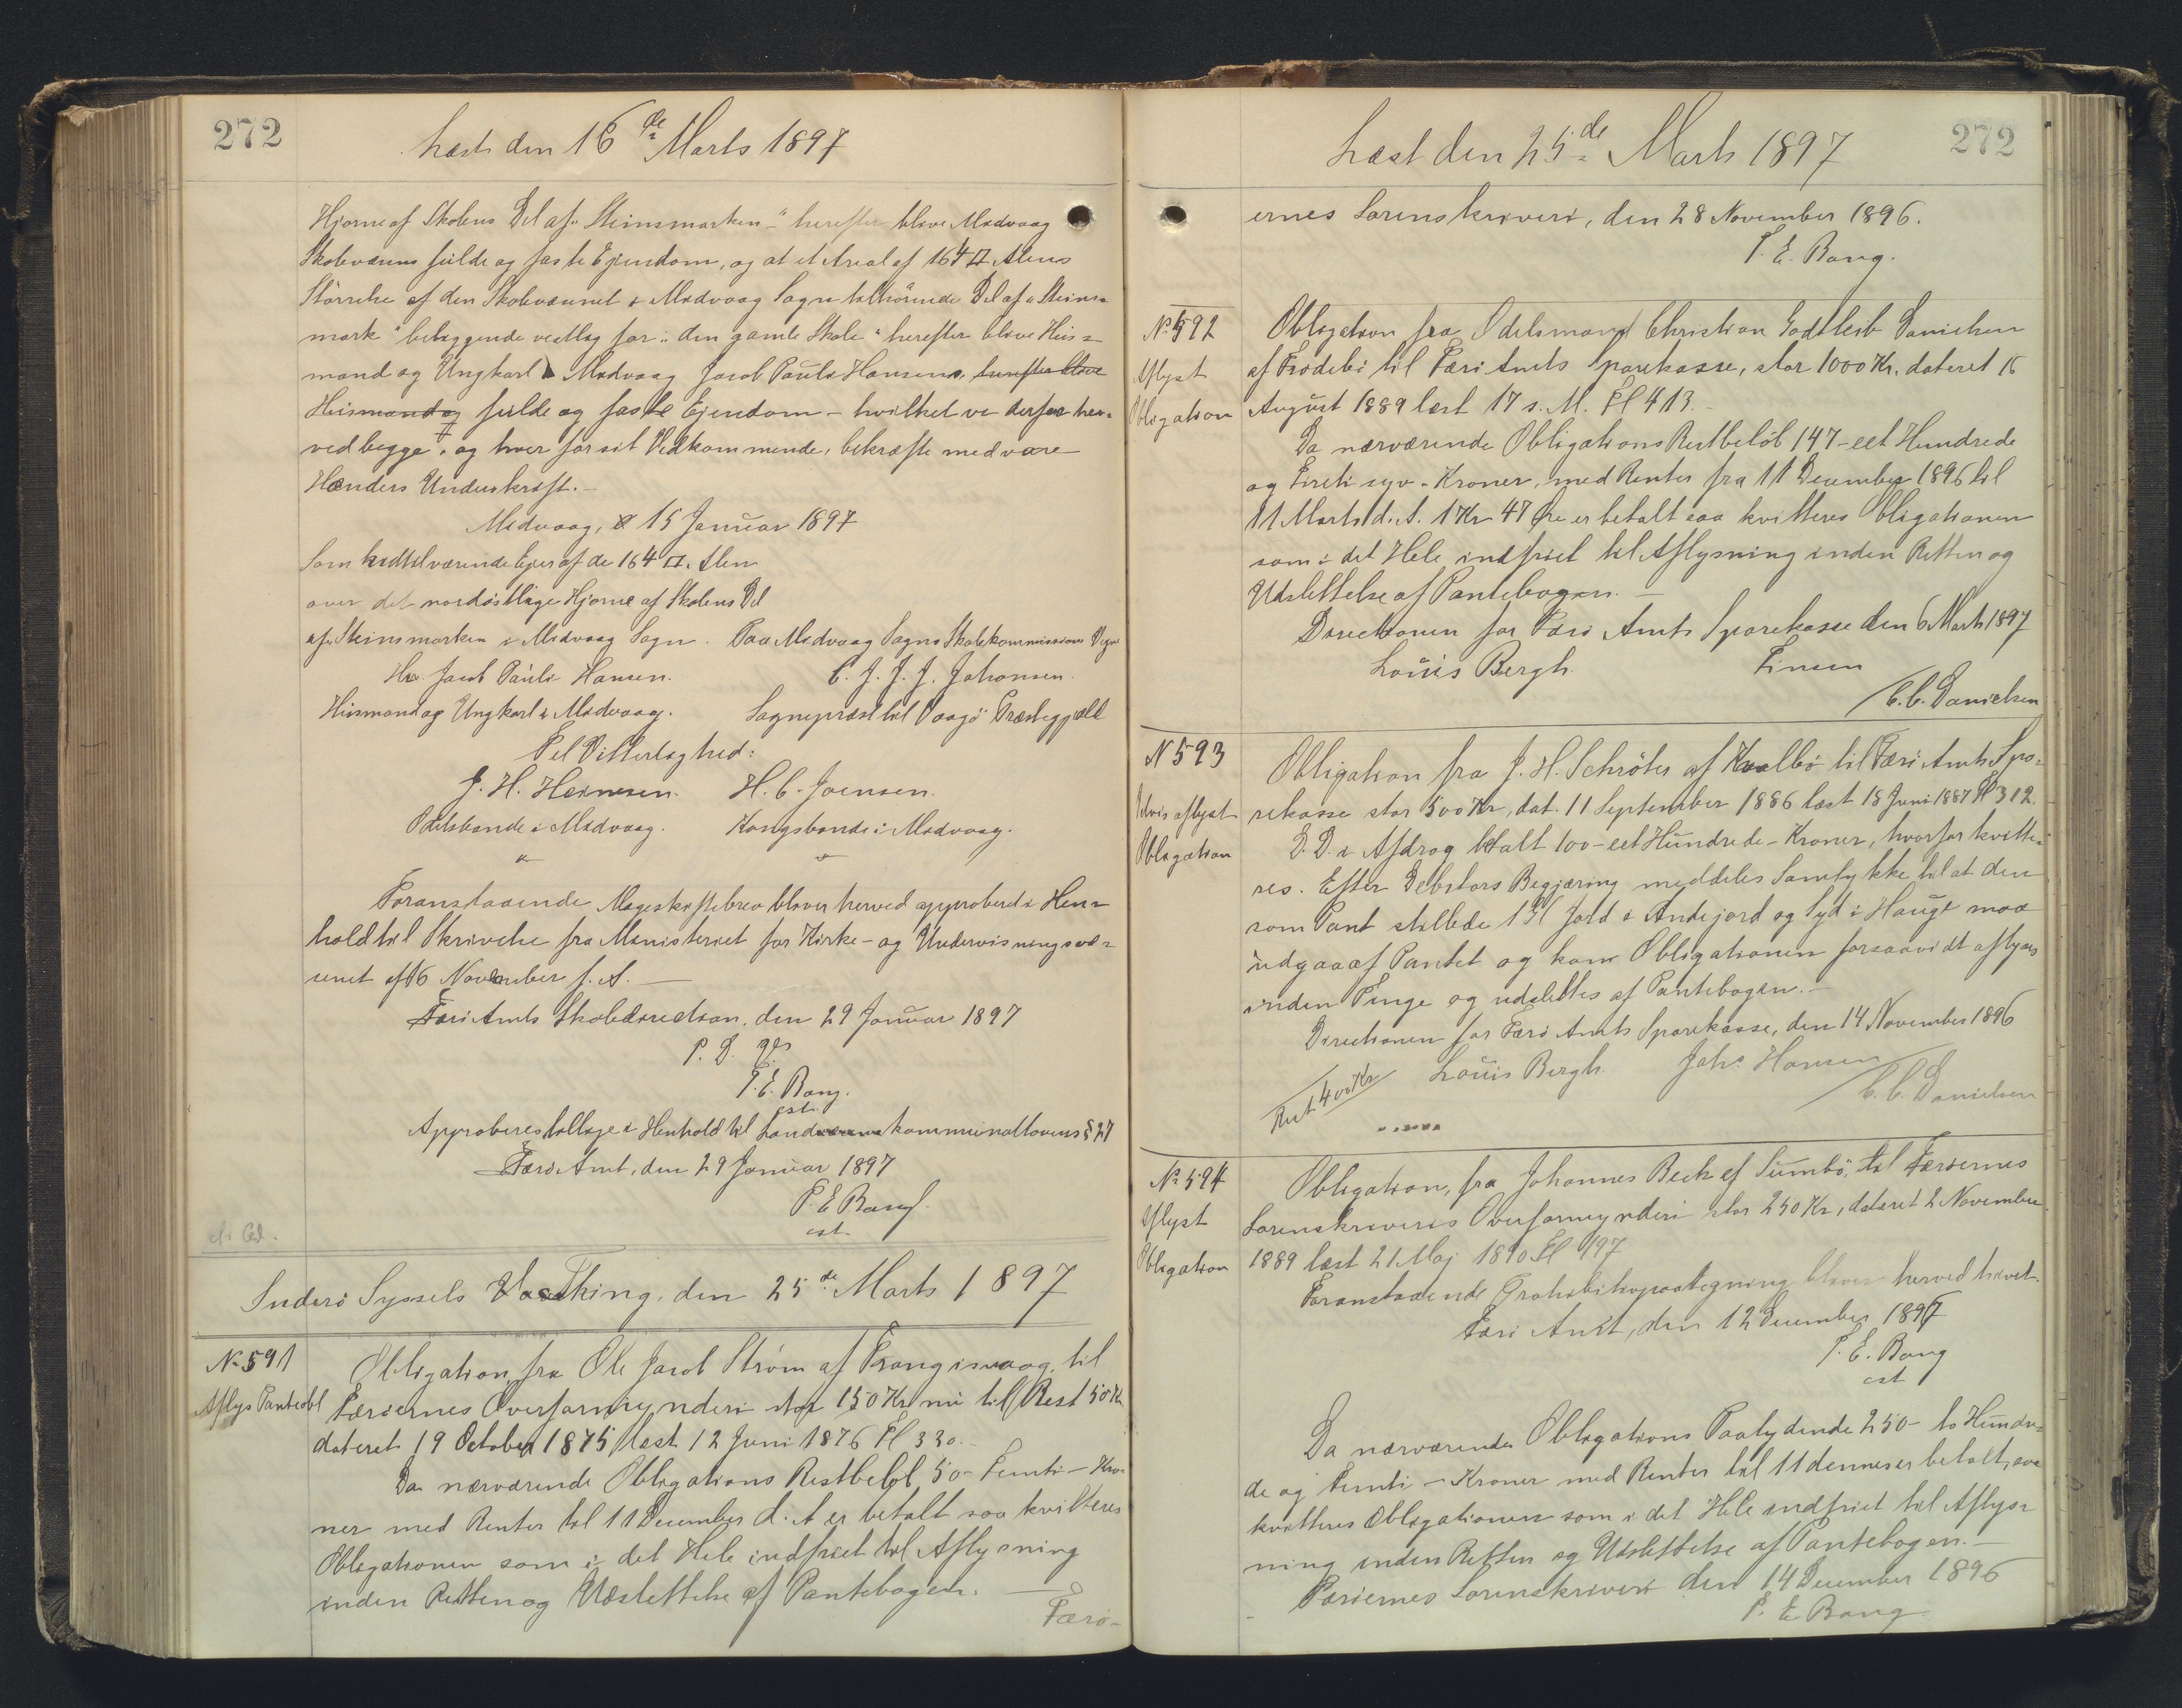 272
Læst den 16de Marts 1897
Hjørne af Skolens Del af "Steinsmarken" herefter blive Midvaag
Skolevæsens fulde og faste Ejendom, og at et Areal af 164 □ Alens
Störrelse af den Skolevæsnet i Midvaag Sogn tilhörende Del af "Steins=
mark" beliggende vestlig for "den gamle Skole" herefter blive Huus=
mand og Ungkarl i Midvaag Jacob Pauli Hansens, herefter blive
Huusmand og fulde og faste Ejendom – hvilket vi derfor her=
ved begge, og hver for sit Vedkommende, bekræfte med vore
Hænders Underskrift. –
Midvaag, d 15 Januar 1897
Som hidtilværende Ejer af de 164 □ Alen
over det nordöstlige Hjørne af Skolens Del
af Steinsmarken i Midvaag Sogn. Paa Midvaag Sogns Skolekommissions Vegne
Jacob Pauli Hansen. C. J. J. J. Johansen.
Huusmand og Ungkarl i Midvaag. Sognepræst til Vaagö Præstegjæld
Til Vitterlighed:
J. H. Heinesen. H. C. Joensen.
Odelsbonde i Midvaag. Kongsbonde i Midvaag.
Foranstaaende Mageskiftebrev bliver herved approberet i Hen=
hold til Skrivelse fra Ministeriet for Kirke- og Undervisningsvæ=
senet af 16 November f. A. –
Færö Amts Skoledirection, den 29 Januar 1897
P. D. V.
P. E. Bang.
cst.
Approberes tillige i Henhold til Landkommunallovens § 27
Færö Amt, den 29 Januar 1897
P. E. Bang.
cst.
Suderö Syssels Vaarthing, den 25de Marts 1897
No 591
Aflys Panteobl
Obligation fra Ole Jacob Strøm af Trangisvaag, til
Færöernes Overformynderi stor 150 Kr nu til Rest 50 Kr
dateret 19 October 1875 læst 12 Juni 1876 Fl 330. –
Da nærværende Obligations Restbeløb 50 – Femti – Kro=
ner med Renter til 11 December d. A. er betalt saa kvitteres
Obligationen som i det Hele indfriet til Aflysning
inden Retten og Udslettelse af Pantebogen. –
Færö-
Læst den 25de Marts 1897
272
ernes Sorenskriveri, den 28 November 1896.
P. E. Bang.
No 592
Aflyst
Obligation
Obligation fra Odelsmand Christian Godtlieb Danielsen
af Frodebö til Færö Amts Sparekasse, stor 1000 Kr. dateret 16
August 1889 læst 17 s. M. Fl 413. –
Da nærværende Obligations Restbeløb 147 – eet Hundrede
og Fireti syv – Kroner, med Renter fra 11 December 1896 til
11 Marts d. A. 1 Kr 47 Øre er betalt saa kvitteres Obligationen
som i det Hele indfriet til Aflysning inden Retten og
Udslettelse af Pantebogen. –
Directionen for Færö Amts Sparekasse den 6 Marts 1897
Louis Bergh. Finsen
/ C. C. Danielsen
No 593
Delvis aflyst
Obligation
Obligation fra J. H. Schröter af Kvalbö til Færö Amts Spa=
rekasse stor 500 Kr, dat. 11 September 1886 læst 18 Juni 1887 Fl 312.
D. D. i Afdrag betalt 100 – eet Hundrede – Kroner, hvorfor kvitte=
res. Efter Debitors Begjæring meddeles Samtykke til at den
som Pant stillede 1 Gl Jord i Andejord og Syd i Hauge maa
udgaa af Pantet og kan Obligationen forsaavidt aflyses
inden Tinge og udslettes af Pantebogen. –
Directionen for Færö Amts Sparekasse, den 14 November 1896
Rest 400 Kr Louis Bergh. Johs. Hansen
/ C. C. Danielsen
No 594
Aflyst
Obligation
Obligation, fra Johannes Beck af Sumbö, til Færöernes
Sorenskriveris Overformynderi stor 250 Kr, dateret 2 November
1889 læst 21 Maj 1890 Fl 497
Foranstaaende Prohibitivpaategning bliver herved hævet.
Færö Amt, den 12 December 1896
P. E. Bang
cst
Da nærværende Obligations Paalydende 250 – to Hundre=
de og Femti – Kroner med Renter til 11 dennes er betalt, saa
kvitteres Obligationen som i det Hele indfriet til Aflys=
ning inden Retten og Udslettelse af Pantebogen. –
Færöernes Sorenskriveri den 14 December 1896
P. E. Bang